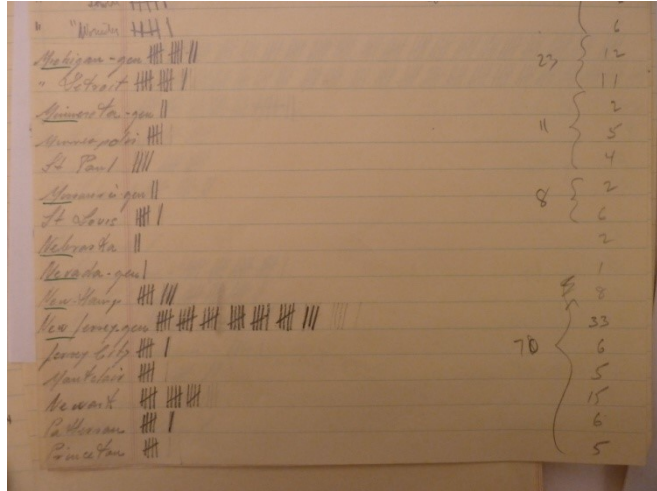 " 6
Michigan-gen 23 12
" Detroit 11
Minnesota-gen 2
Minneapolis 11 5
St Paul 4
Missouri gen 2
St Louis 8 6
Nebraska 2
Nevada-gen 1
New-Hamp 8
New Jersey gen 33
Jersey City 70 6
Montclair 5
Newark 15
Patterson 6
Princeton 5